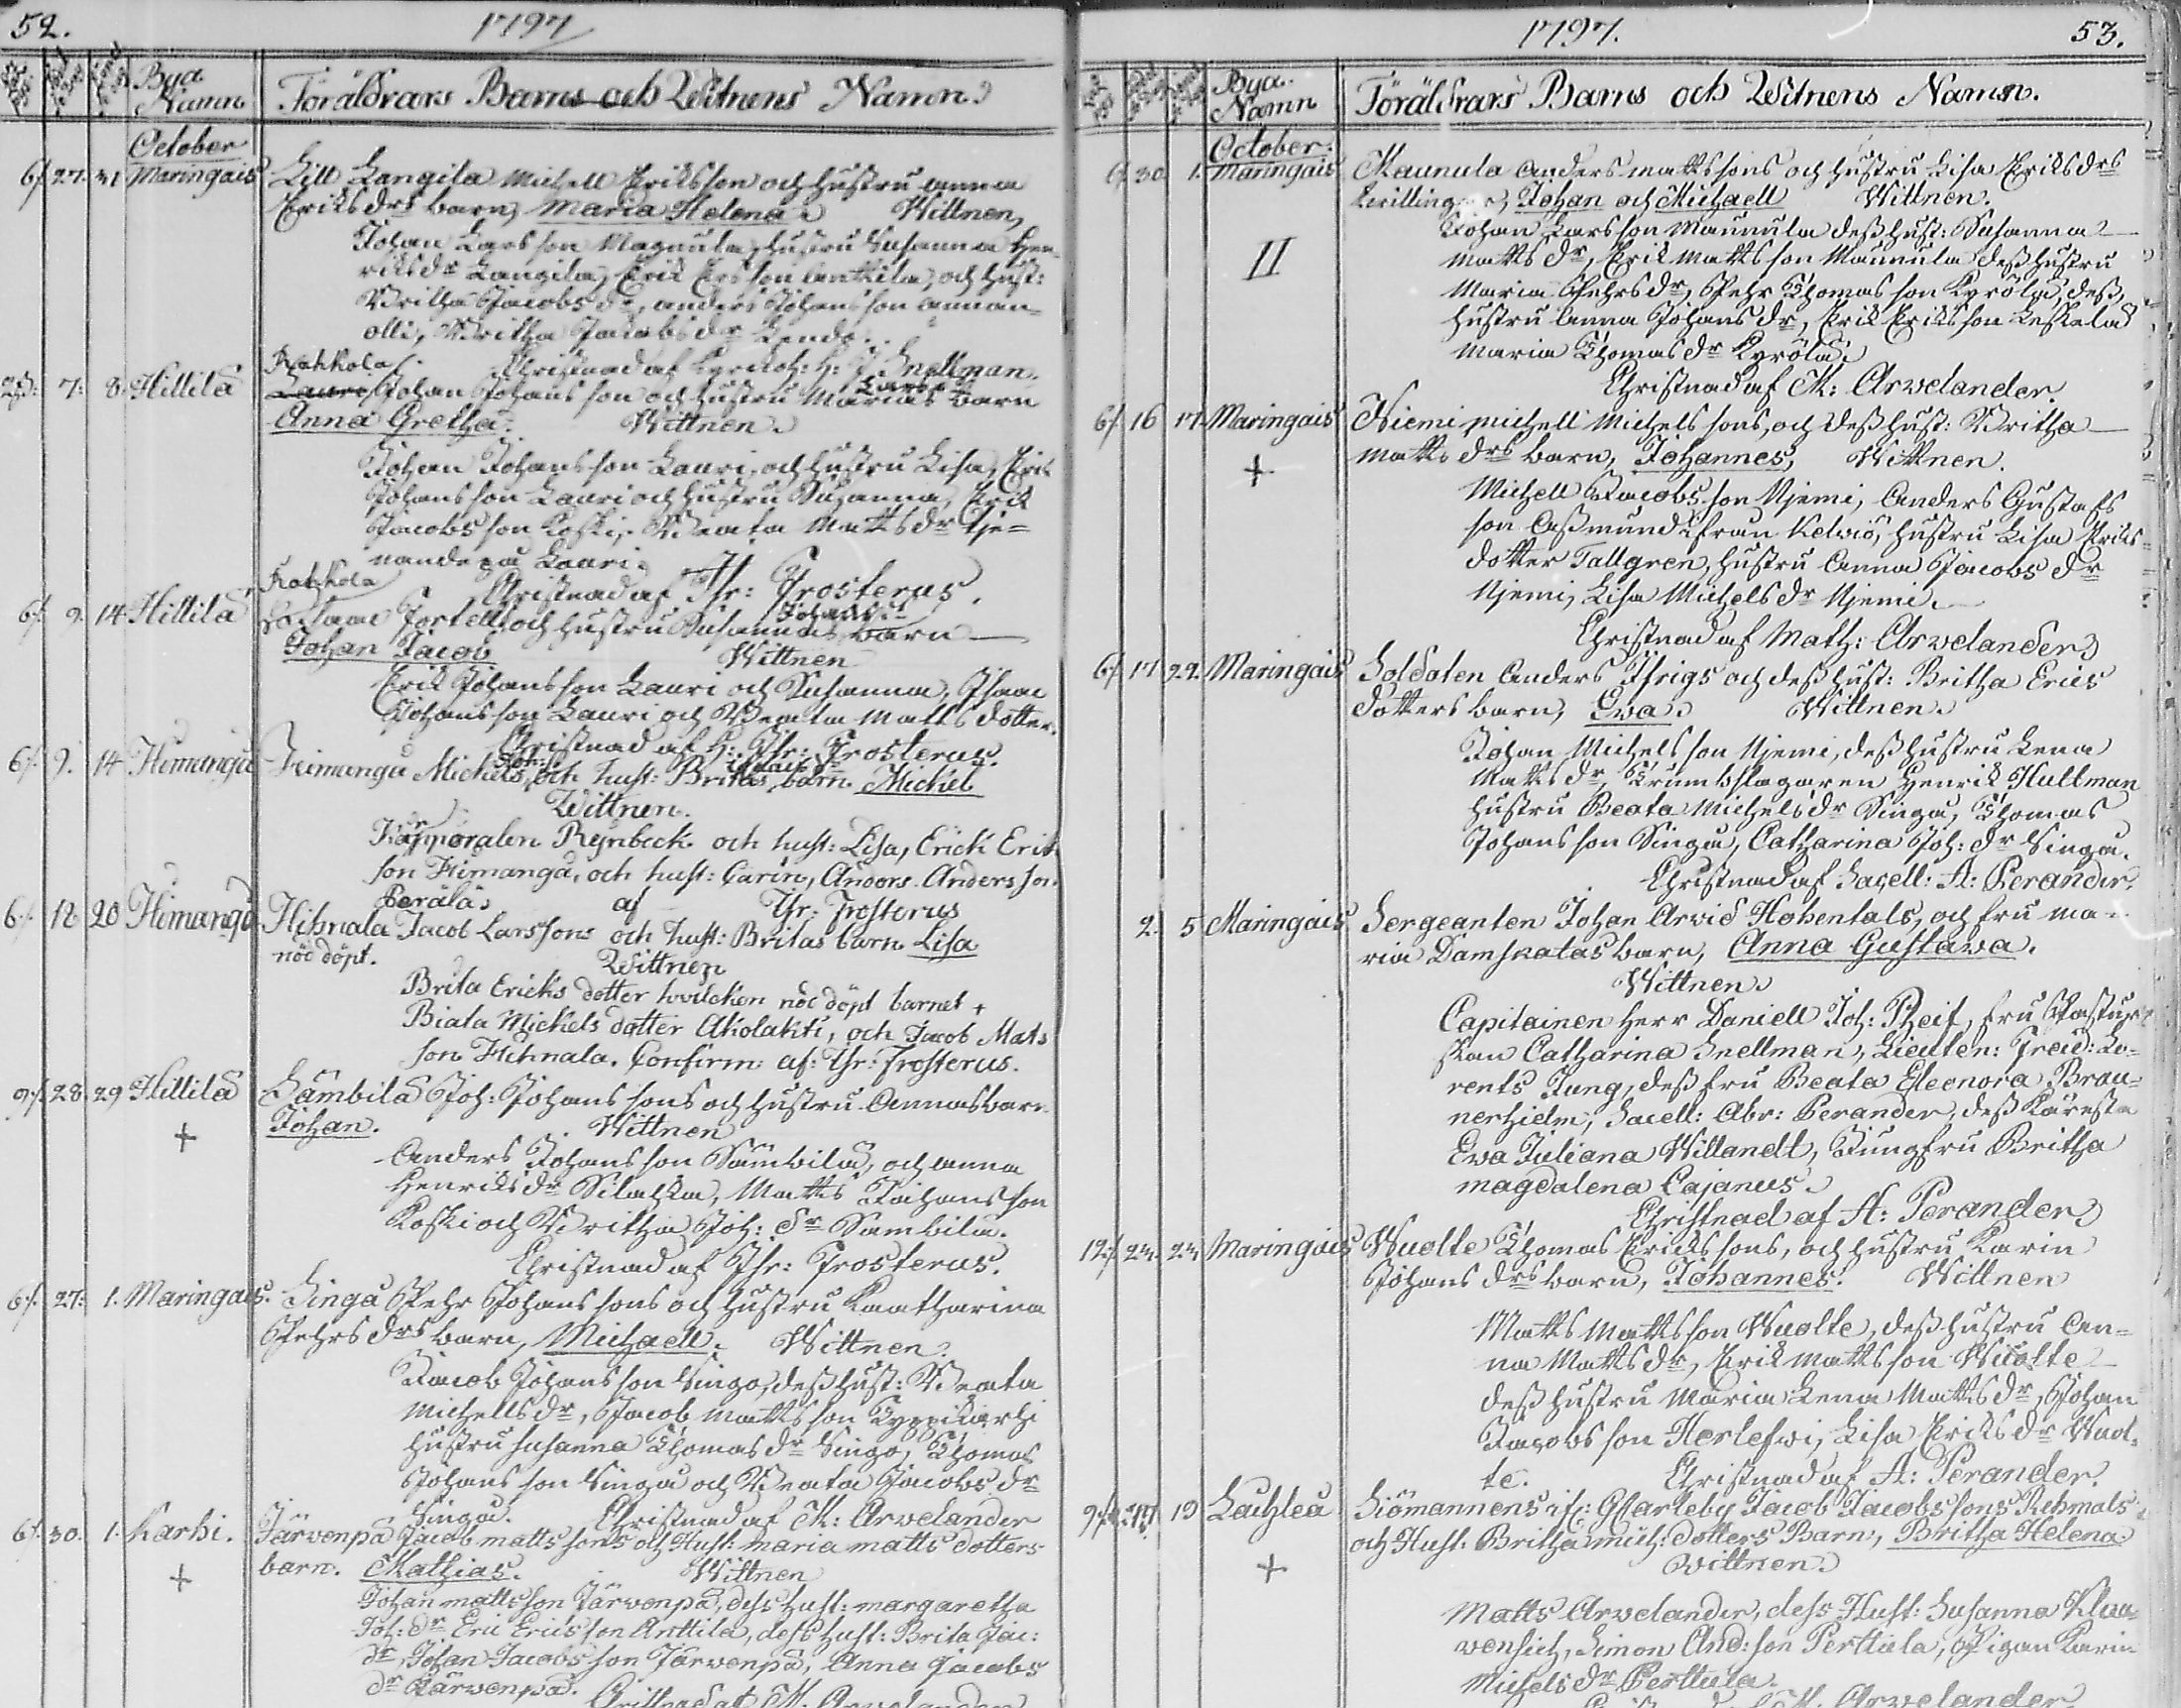 52.
1797
Bya Namn
Föräldrars Barns och Witnens Namn.
October
6/. 27. 31 Maringais
Lill Kangila Michell Eriksson och hustru Anna
Eriks drs barn, Maria Helena. Wittnen,
Johan Larsson Maunula, hustru Susanna Hen-
riks dr Kangila, Erik Ersson Anttila, och hust:
Britha Jacobs dr, Anders Johansson Annan-
olli, Britha Jacobs dr
Christnad af H: J Snellman.
7. 8. Hillilä
Rahkola
Johan Johansson och hustru Marias Lars dr barn
Anna Gretha. Wittnen.
Johan Johansson Lauri, och hustru Lisa, Erik
Johansson Lauri och hustru Susanna, Erik
Jacobsson Koski, Beata Matts dr tje=
nande på Lauri.
Christnad af Thr: Frosterus.
6/. 9. 14 Hillilä
Rahkola
Isaac Fortell och hustru Susannas Johans dr barn
Johan Jacob Wittnen
Erik Johansson Lauri och Susanna, Isaac
Johansson Lauri och Beata Matts dotter.
Christnad af H: Thr: Frosterus.
6/. 9. 14 Himanga
Himanga Michels, och hust: Britas barn. Michel
Wittnen.
Korporalen Reinbeck och hust: Lisa, Erick Erik
son Himanga, och hust: Carin, Anders Andersson.
Perälä. af Thr: Frosterus
6/. 12 20 Himanga
Hihnala Jacob Larssons och hust: Britas barn Lisa
nöd döpt. Wittnen
Brita Ericks dotter hvilcken nöd döpt barnet +
Biata Mickels dotter Aholakti, och Jacob Mats
son Hihnala. Confirm: af: Thr: Frosterus.
9/. 28 29 Hillilä
+
Sämbilä Joh: Johanssons och hustru Annas barn
Johan. Wittnen
Anders Johansson Sämbilä, och Anna
Henriks dr Silahka, Matts Johansson
Koski och Britha Joh: dr Sambila.
Christnad af Thr: Frosterus.
6/. 27. 1. Maringais.
Singa Pehr Johanssons och hustru Kaatharina
Pehrs drs barn, Michaell. Wittnen.
Jacob Johansson Singo, dess hust: Beata
Michells dr, Jacob Mattsson Kyppikarhi
hustru Susanna Thomas dr Singo, Thomas
Johansson Singa och Beata Jacobs dr
Singa. Christnad af M: Arvelander
6/. 30. 1. Karhi.
+
Järvenpä Jacob Mattssons och Hust: Maria Matts dotters
barn. Mathias. Wittnen
Johan Mattsson Järwenpä, dess hust: Margaretha
Joh: dr Eric Ericsson Anttila, dess hust: Brita Jac:
dr, Johan Jacobsson Järwenpä, Anna Jacobs
dr Järwenpä.
Christnad af M. Arvelander
1797.
53.
Bya Namn
Föräldrars Barns och Witnens Namn.
October.
6/. 30 1. Maringais
II
Maunula Anders Mattssons och hustru Lisa Eriks drs
tvillingar, Johan och Michaell Wittnen.
Johan Larsson Maunula dess hust: Susanna
Matts dr, Erik Mattsson Maunula dess hustru
Maria Pehrs dr, Pehr Thomasson Kyrölä, dess
hustru Anna Johans dr, Erik Eriksson Keskela
Maria Thomas dr Kyrölä.
Christnad af M: Arvelander.
6/. 16 17. Maringais
+
Niemi Michell Michelssons, och dess hust: Britha
Matts drs barn, Johannes, Wittnen.
Michell Jacobsson Njemi, Anders Gustafs
son Assmund från Kelviå, hustru Lisa Eriks
dotter Tallgren, hustru Anna Jacobs dr
Njemi, Lisa Michels dr Njemi.
Christnad af Math: Arvelander
6/. 17 22. Maringais
Soldaten Anders Ifrigs och dess hust: Britha Erics
dotters barn, Eva. Wittnen.
Johan Michelsson Njemi, dess hustru Lena
Matts dr, Trumbslagaren Henrik Hullman
hustru Beata Michels dr Singa, Thomas
Johansson Singa, Catharina Joh: dr Singa.
Christnad af Sacell: A: Perander.
2. 5 Maringais
Sergeanten Johan Arvid Hohentals, och fru Ma-
ria Damskatas barn, Anna Gustava.
Wittnen.
Capitainen Herr Daniell Joh: Pheif, fru Pastor-
skan Catharina Snellman, Lieuten: Fred: Lo-
rents Jung, dess fru Beata Eleonora Brau-
nerhielm, Sacell: Abr: Perander, dess Käresta
Ewa Juliana Willandt, Jungfru Britha
Magdalena Cajanus.
Christnad af A: Perander
12/. 23. 24 Maringais
Wuolte Thomas Erickssons, och hustru Karin
Johans drs barn, Johannes. Wittnen
Matts Mattsson Wuolte, dess hustru An-
na Matts dr, Erik Mattsson Wuolte
dess hustru Maria Lena Matts dr, Johan
Jacobsson Herlefwi, Lisa Eriks dr Wuol-
te. Christnad af A: Perander.
9/. 19 Lachlea
+
Siömannens if: GCarleby Jacob Jacobssons Rehmals
och Hust. Britha Mich: dotters Barn, Britha Helena.
Wittnen.
Matts Arvelander, dess Hust: Susanna
Simon And: son Perttula, Pigan Karin
Michels dr Perttula.
M. Arvelander